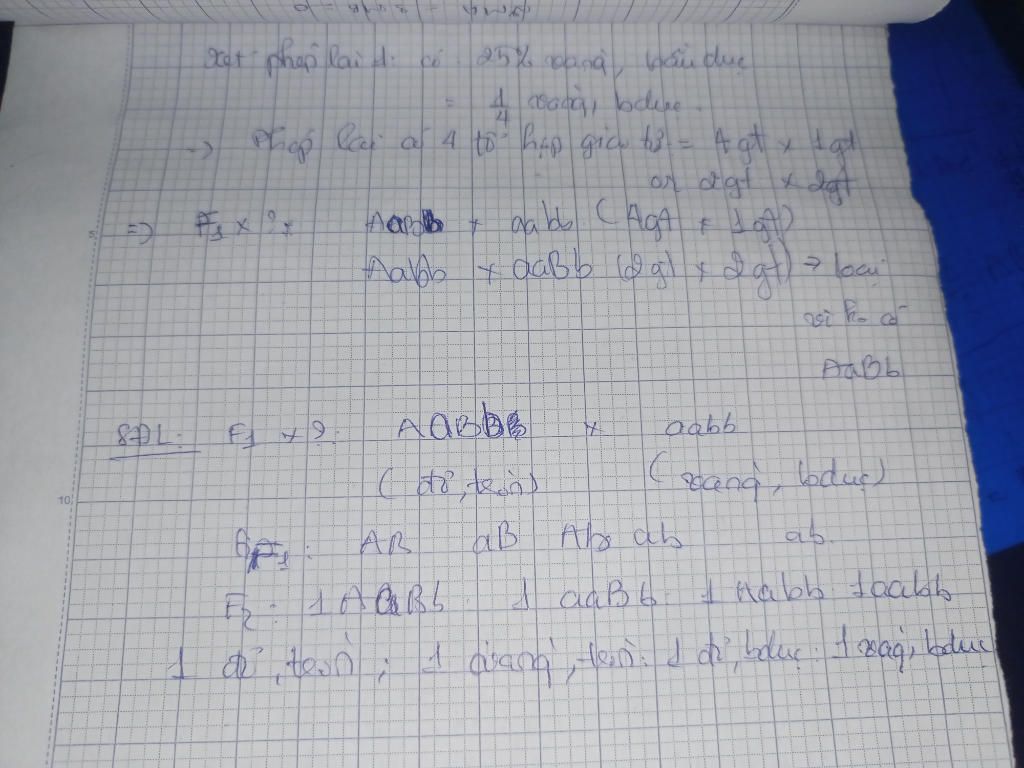 Xét phép lai 1: có 25% vàng, bầu dục
= 1/4 vàng, bdục.
-> Phép lai có 4 tổ hợp giao tử = 4gt x 1gt
or 2gt x 2gt
=> F1 x ?: AaBb x aabb (4gt x 1gt)
AaBb x aaBb (2gt x 2gt) -> loại
vì k có
AaBb
SĐL: F1 x ?: AaBb x aabb
(đỏ, tròn) (vàng, bdục)
GF1: AB aB Ab ab ab.
F2: 1 AaBb 1 aaBb 1 Aabb 1aabb
1 đỏ, tròn; 1 vàng, tròn: 1 đỏ, bdục: 1 vàg, bdục
5
10